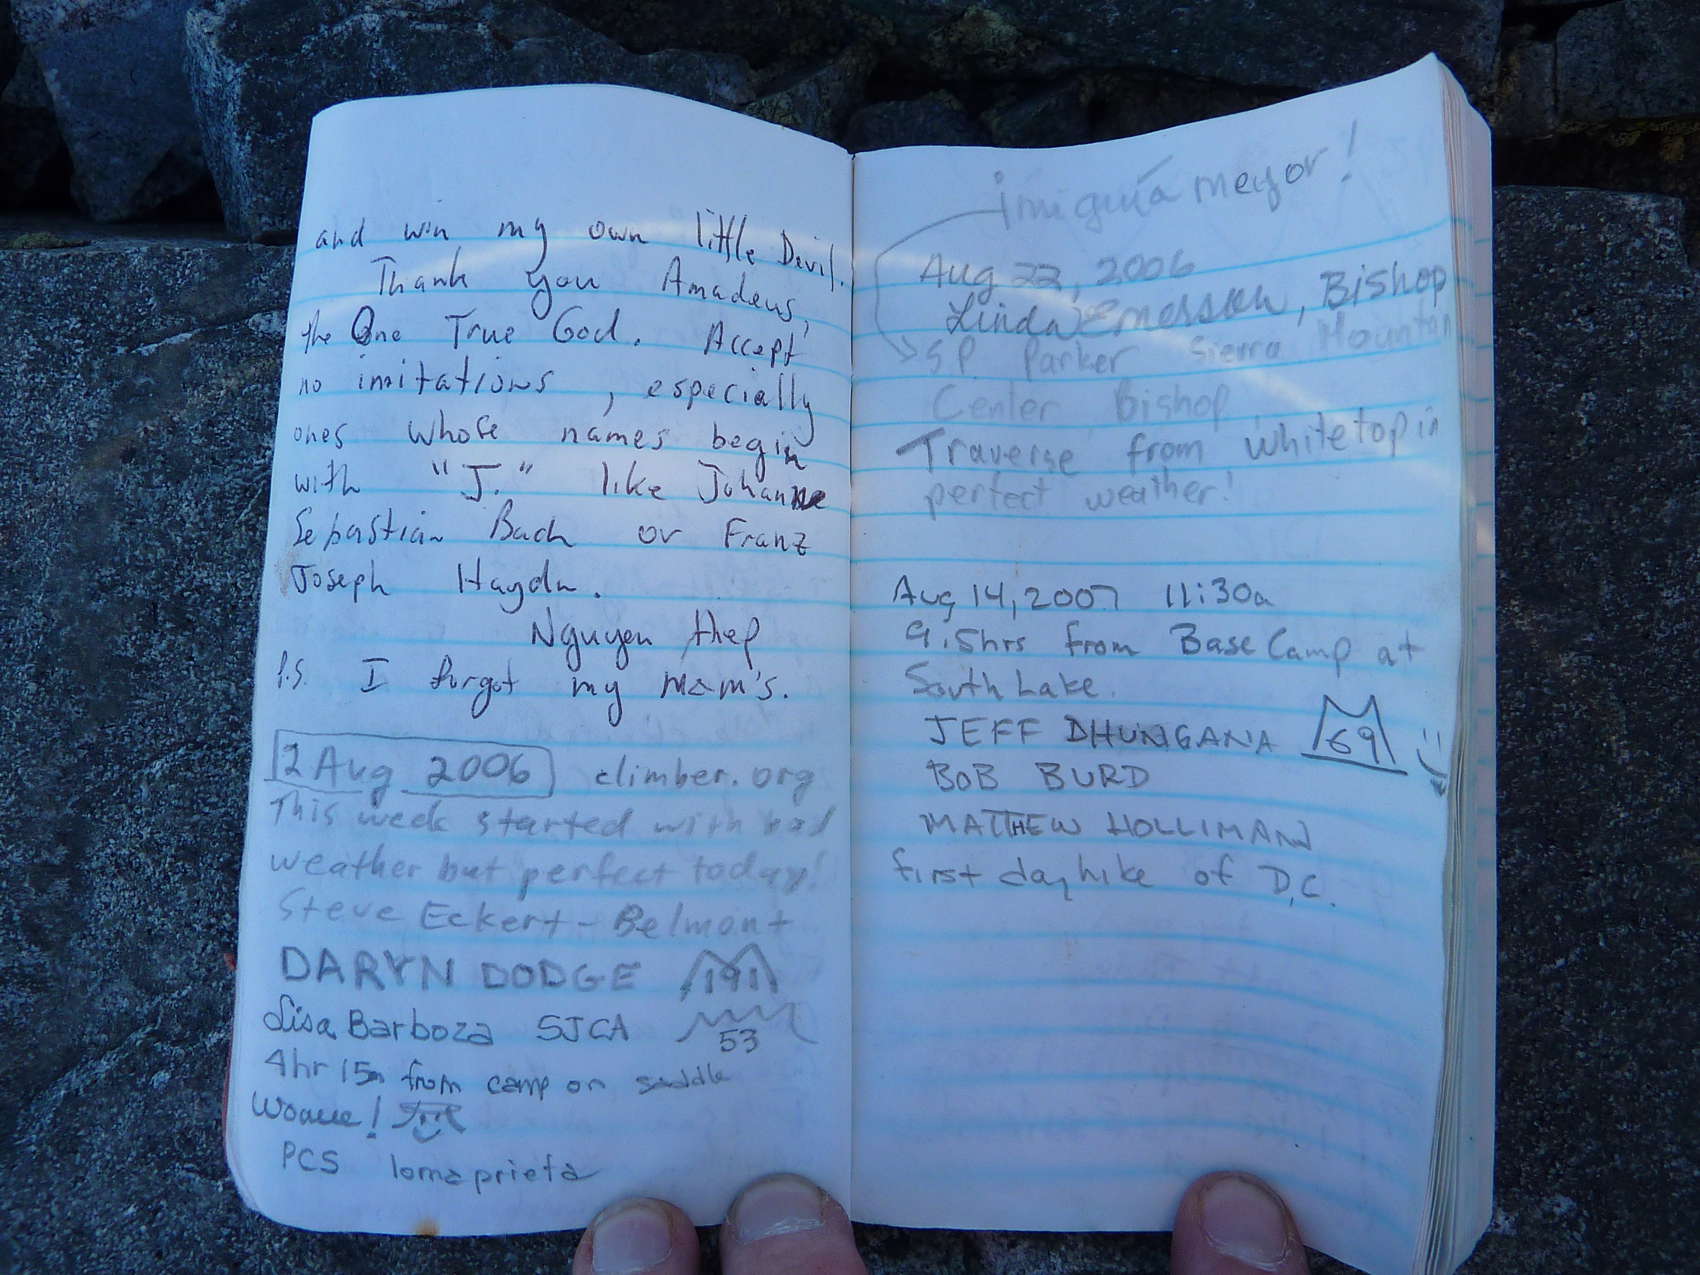 and win my own little Devil.
Thank you Amadeus,
the One True God. Accept
no imitations, especially
ones whose names begin
with "J." like Johanne
Sebastian Bach or Franz
Joseph Haydn.
Nguyen thep
P.S. I forgot my mom's.
2 Aug 2006 climber.org
This week started with bad
weather but perfect today!
Steve Eckert - Belmont
DARYN DODGE 191
Lisa Barboza SJCA 53
4hr 15m from camp on saddle
PCS loma prieta
¡mi guía meyor!
Aug 22, 2006
Linda Emerson, Bishop
S.P. Parker Sierra Mountain
Center Bishop
Traverse from whitetop in
perfect weather!
Aug 14, 2007 11:30a
9.5hrs from Base Camp at
South Lake.
JEFF DHUNGANA 69
BOB BURD
MATTHEW HOLLIMAN
first dayhike of D.C.